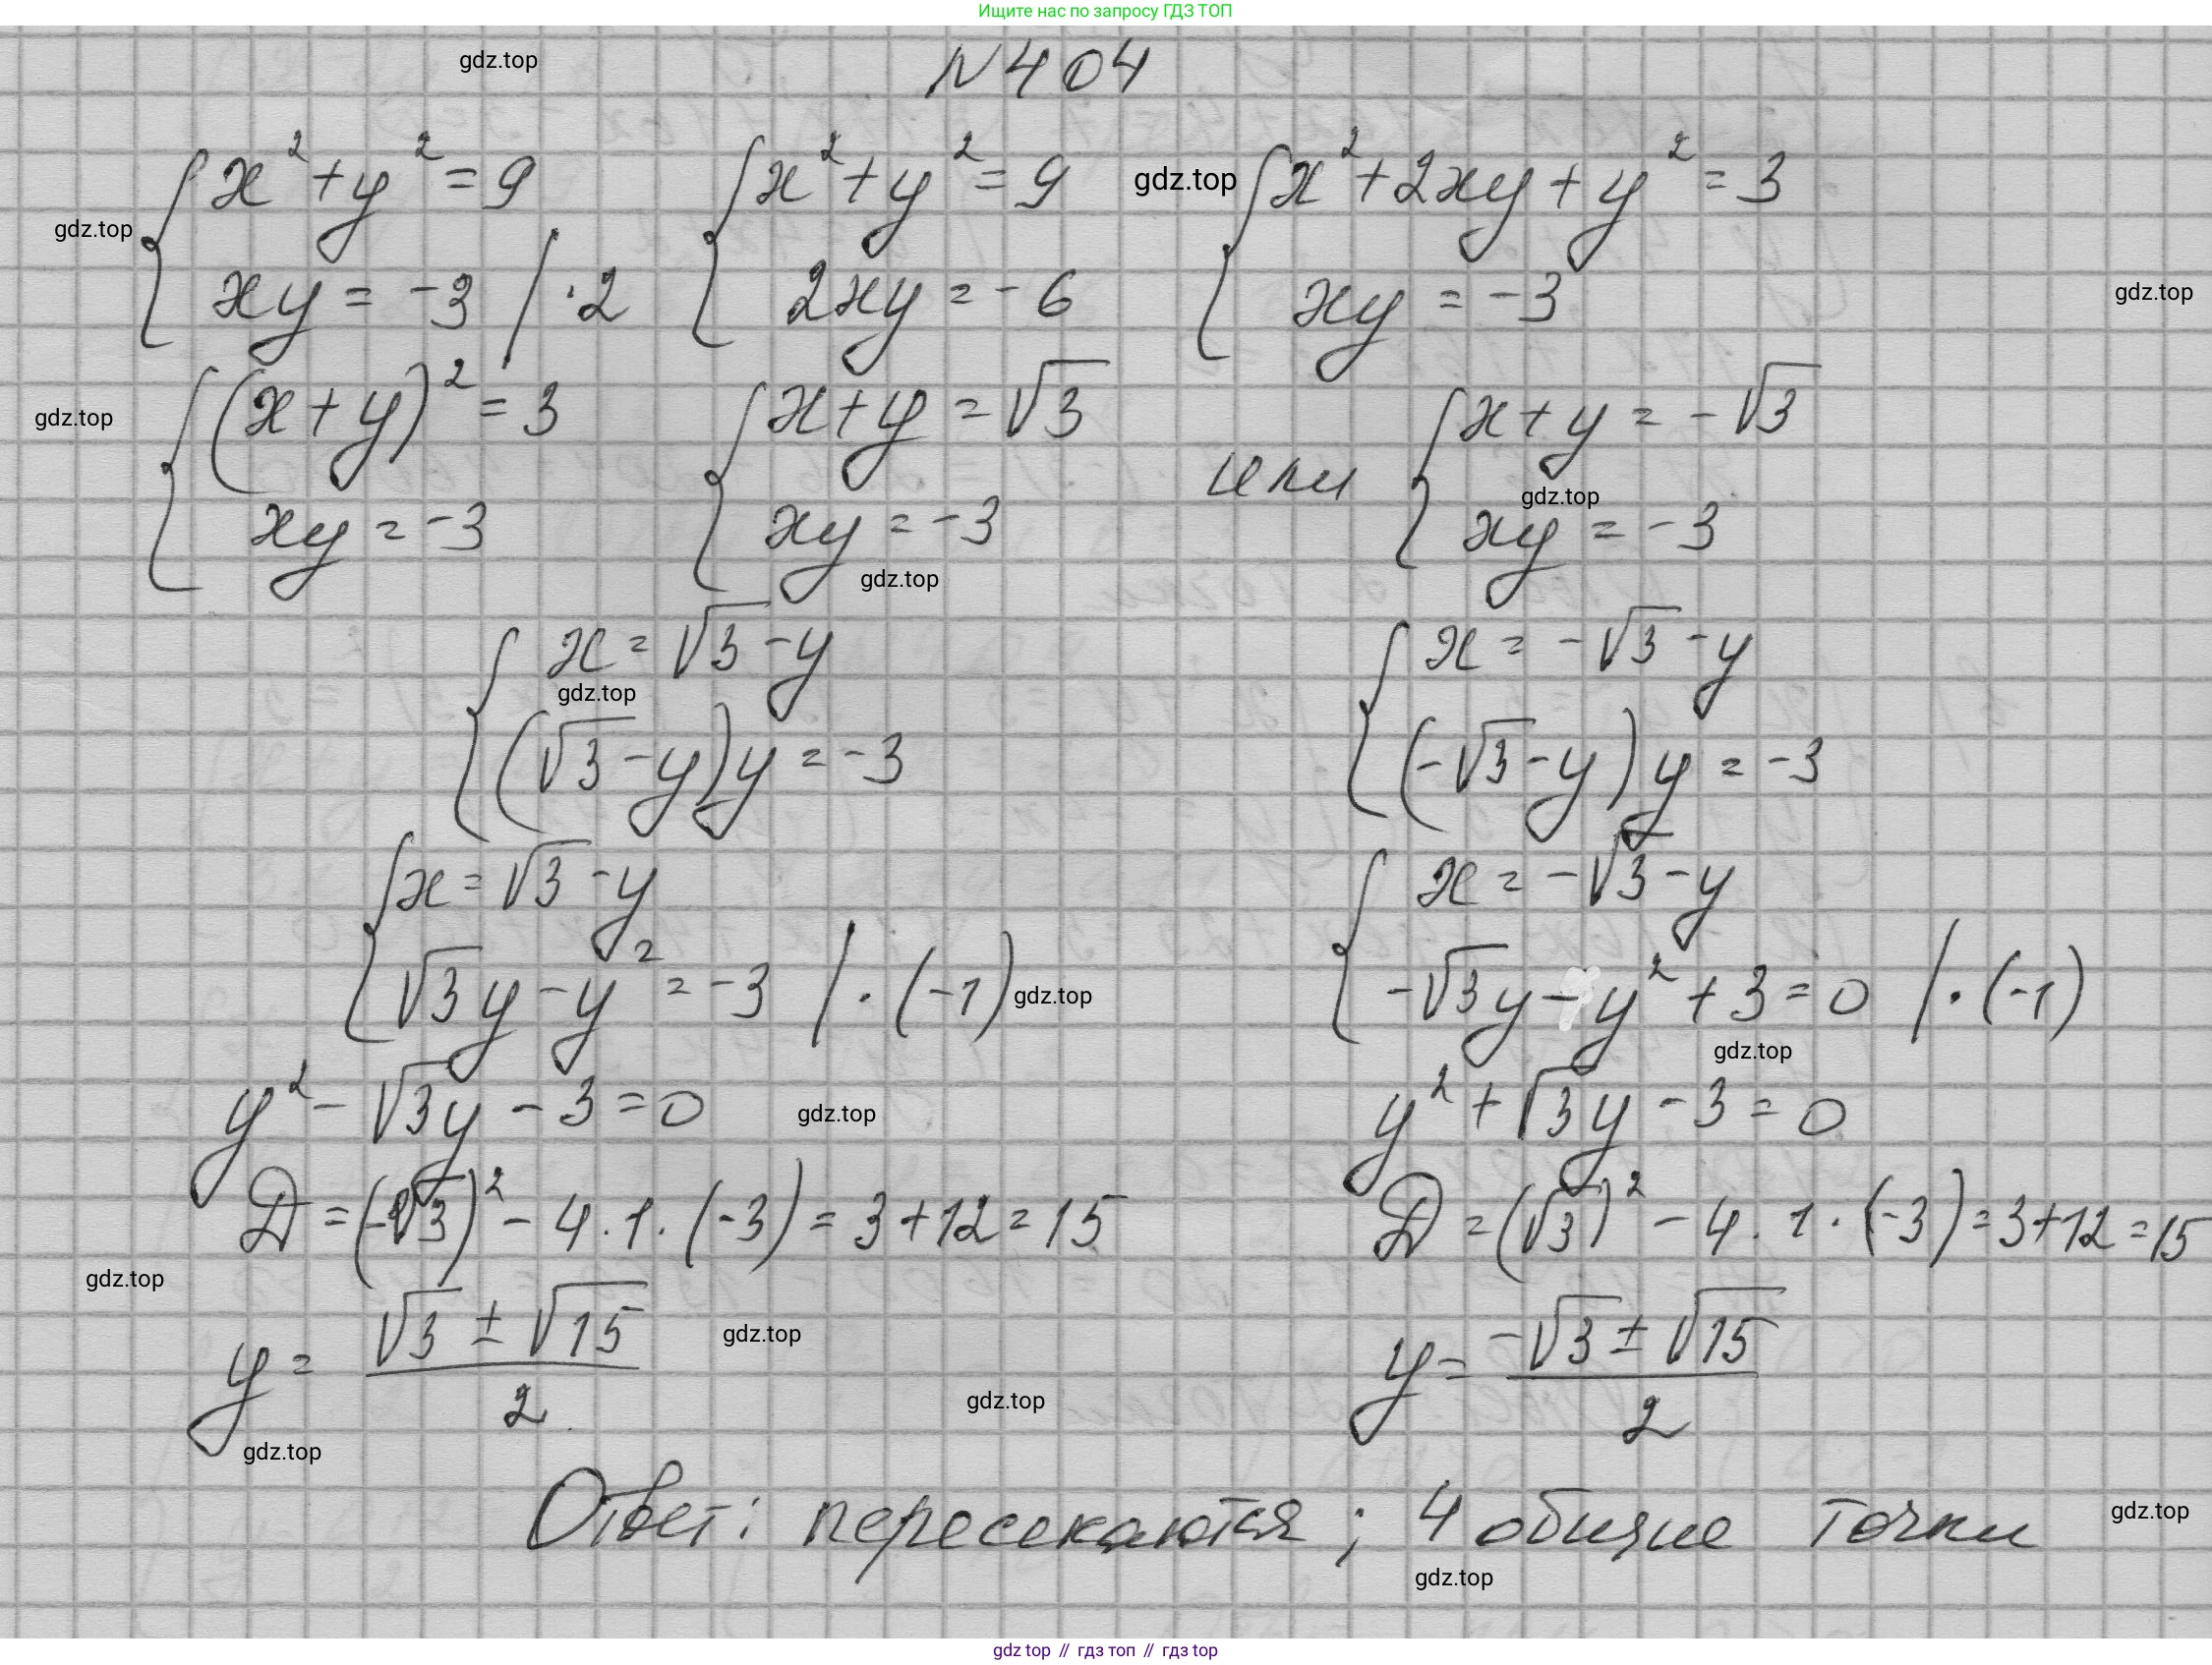 Ищите нас по запросу ГДЗ ТОП
gdz.top
N 404
{ x² + y² = 9 { x² + y² = 9 gdz.top { x² + 2xy + y² = 3
gdz.top
xy = -3 / ·2 2xy = -6 xy = -3 gdz.top
{ (x + y)² = 3 { x + y = √3 или { x + y = -√3
gdz.top
gdz.top
xy = -3 xy = -3 xy = -3
gdz.top
{ x = √3 - y { x = -√3 - y
gdz.top
(√3 - y)y = -3 (-√3 - y)y = -3
{ x = √3 - y { x = -√3 - y
√3y - y² = -3 / · (-1) gdz.top -√3y - y² + 3 = 0 / · (-1)
gdz.top
y² - √3y - 3 = 0 gdz.top y² + √3y - 3 = 0
D = (-√3)² - 4 · 1 · (-3) = 3 + 12 = 15 D = (√3)² - 4 · 1 · (-3) = 3 + 12 = 15
gdz.top
y = (√3 ± √15) / 2 gdz.top y = (-√3 ± √15) / 2
gdz.top
gdz.top
Ответ: пересекаются; 4 общие точки gdz.top
gdz.top
gdz top // гдз топ // гдз top